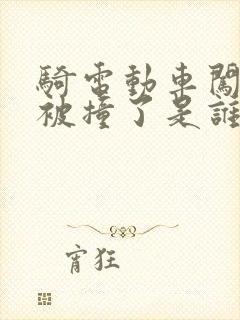 騎電動車闖
被撞了是誰
宵狂